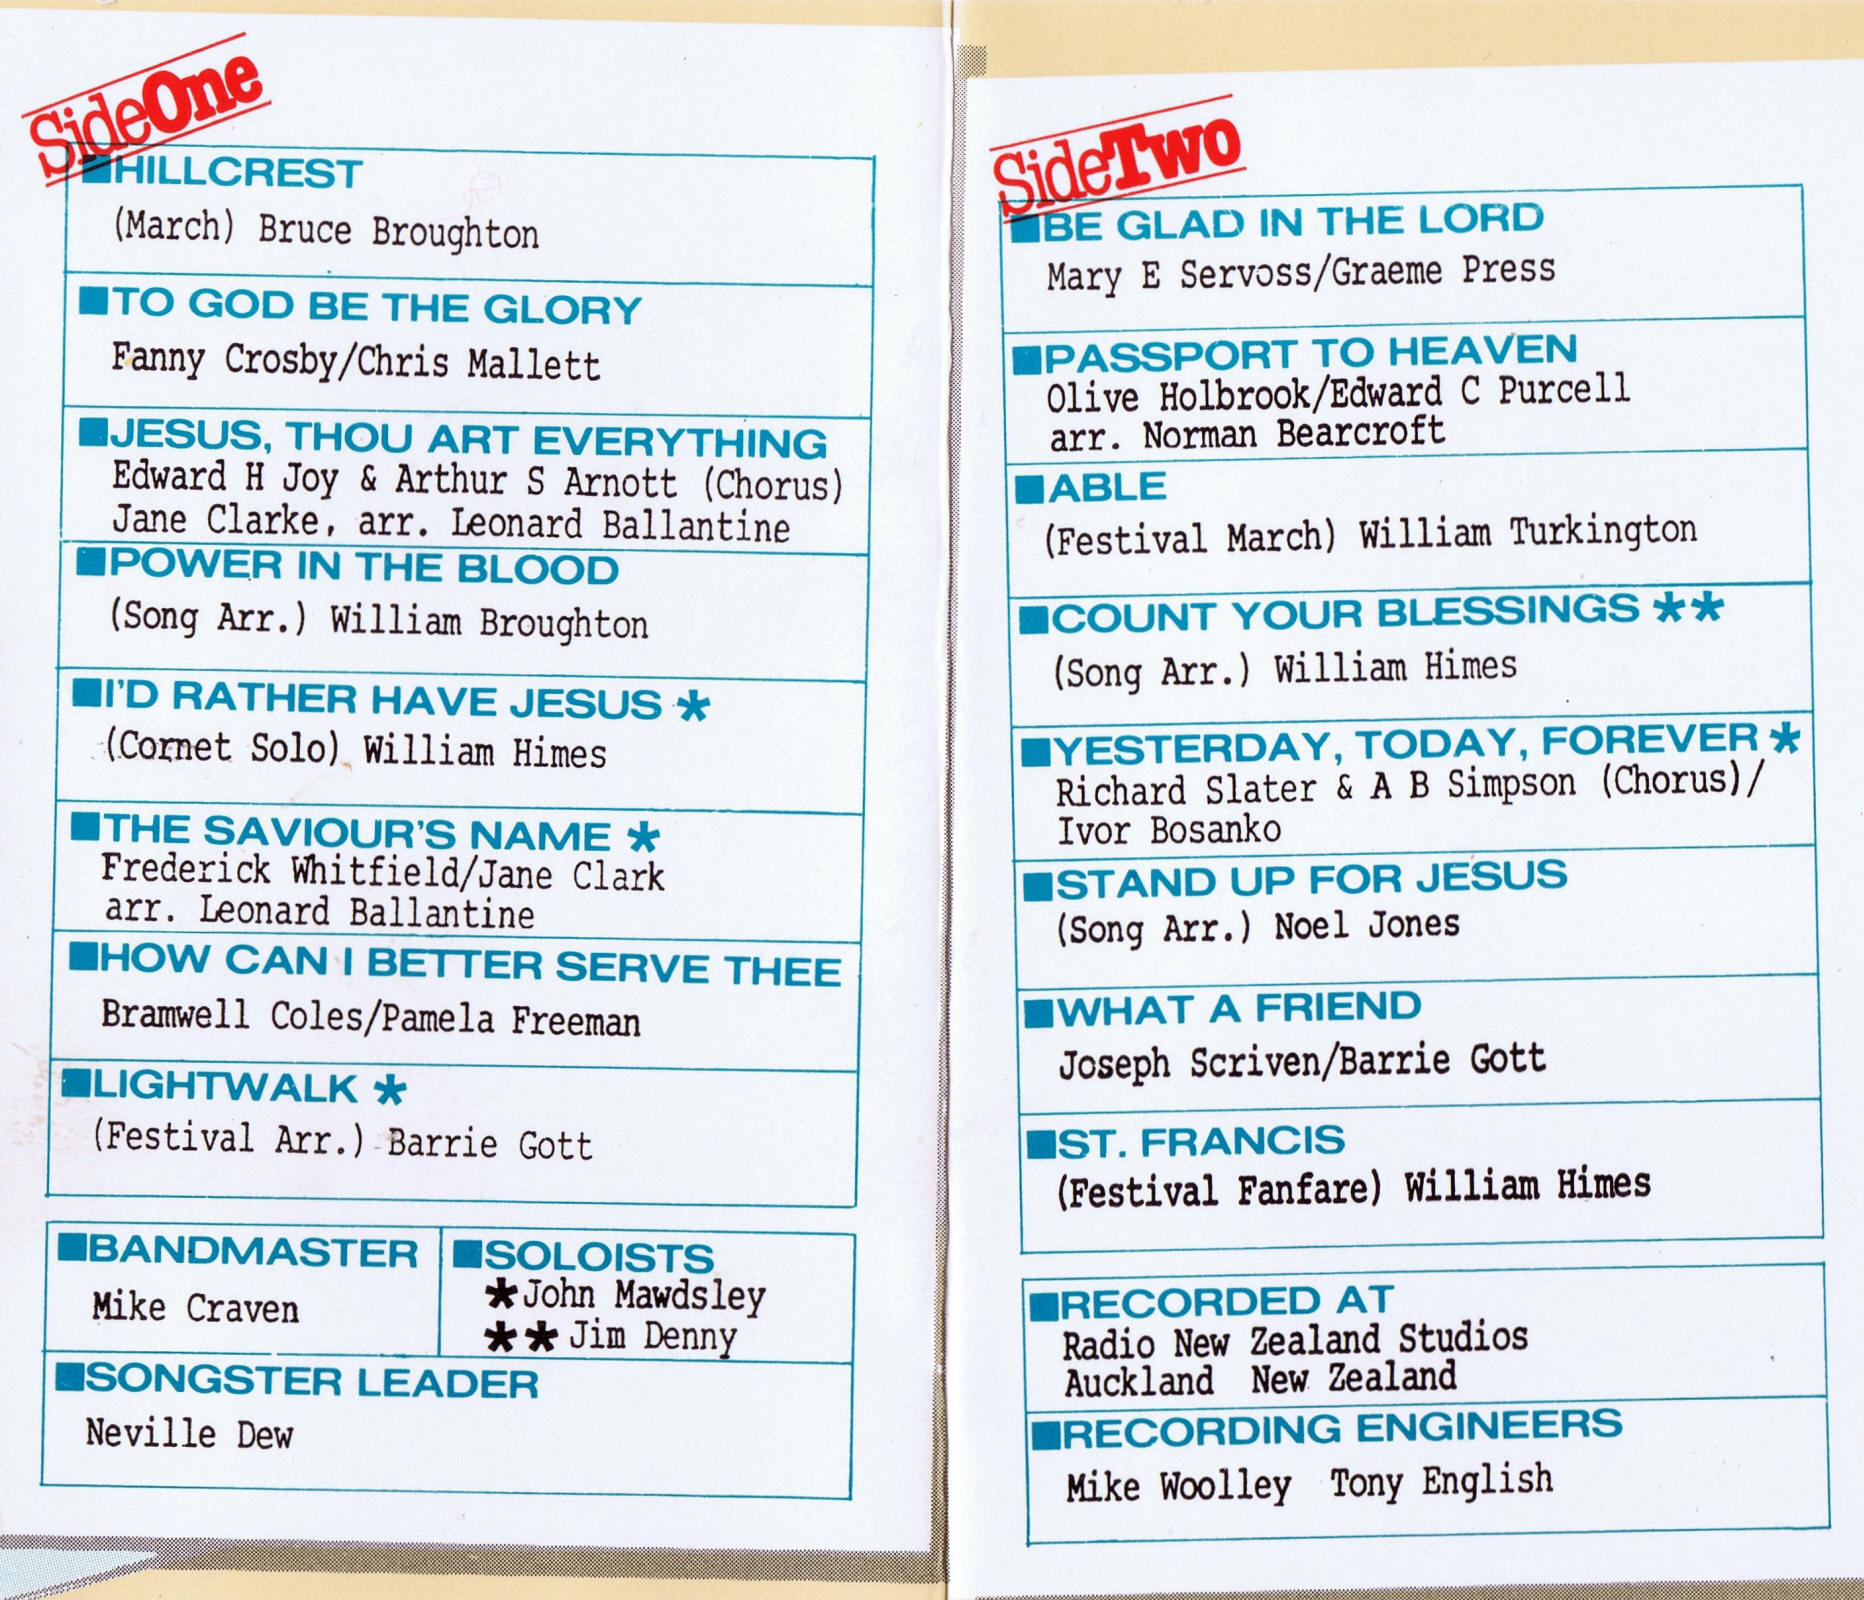 SideOne
HILLCREST
(March) Bruce Broughton
TO GOD BE THE GLORY
Fanny Crosby/Chris Mallett
JESUS, THOU ART EVERYTHING
Edward H Joy & Arthur S Arnott (Chorus)
Jane Clarke, arr. Leonard Ballantine
POWER IN THE BLOOD
(Song Arr.) William Broughton
I'D RATHER HAVE JESUS *
(Cornet Solo) William Himes
THE SAVIOUR'S NAME *
Frederick Whitfield/Jane Clark
arr. Leonard Ballantine
HOW CAN I BETTER SERVE THEE
Bramwell Coles/Pamela Freeman
LIGHTWALK *
(Festival Arr.) Barrie Gott
BANDMASTER
Mike Craven
SOLOISTS
*John Mawdsley
** Jim Denny
SONGSTER LEADER
Neville Dew
SideTwo
BE GLAD IN THE LORD
Mary E Servoss/Graeme Press
PASSPORT TO HEAVEN
Olive Holbrook/Edward C Purcell
arr. Norman Bearcroft
ABLE
(Festival March) William Turkington
COUNT YOUR BLESSINGS **
(Song Arr.) William Himes
YESTERDAY, TODAY, FOREVER *
Richard Slater & A B Simpson (Chorus)/
Ivor Bosanko
STAND UP FOR JESUS
(Song Arr.) Noel Jones
WHAT A FRIEND
Joseph Scriven/Barrie Gott
ST. FRANCIS
(Festival Fanfare) William Himes
RECORDED AT
Radio New Zealand Studios
Auckland New Zealand
RECORDING ENGINEERS
Mike Woolley Tony English